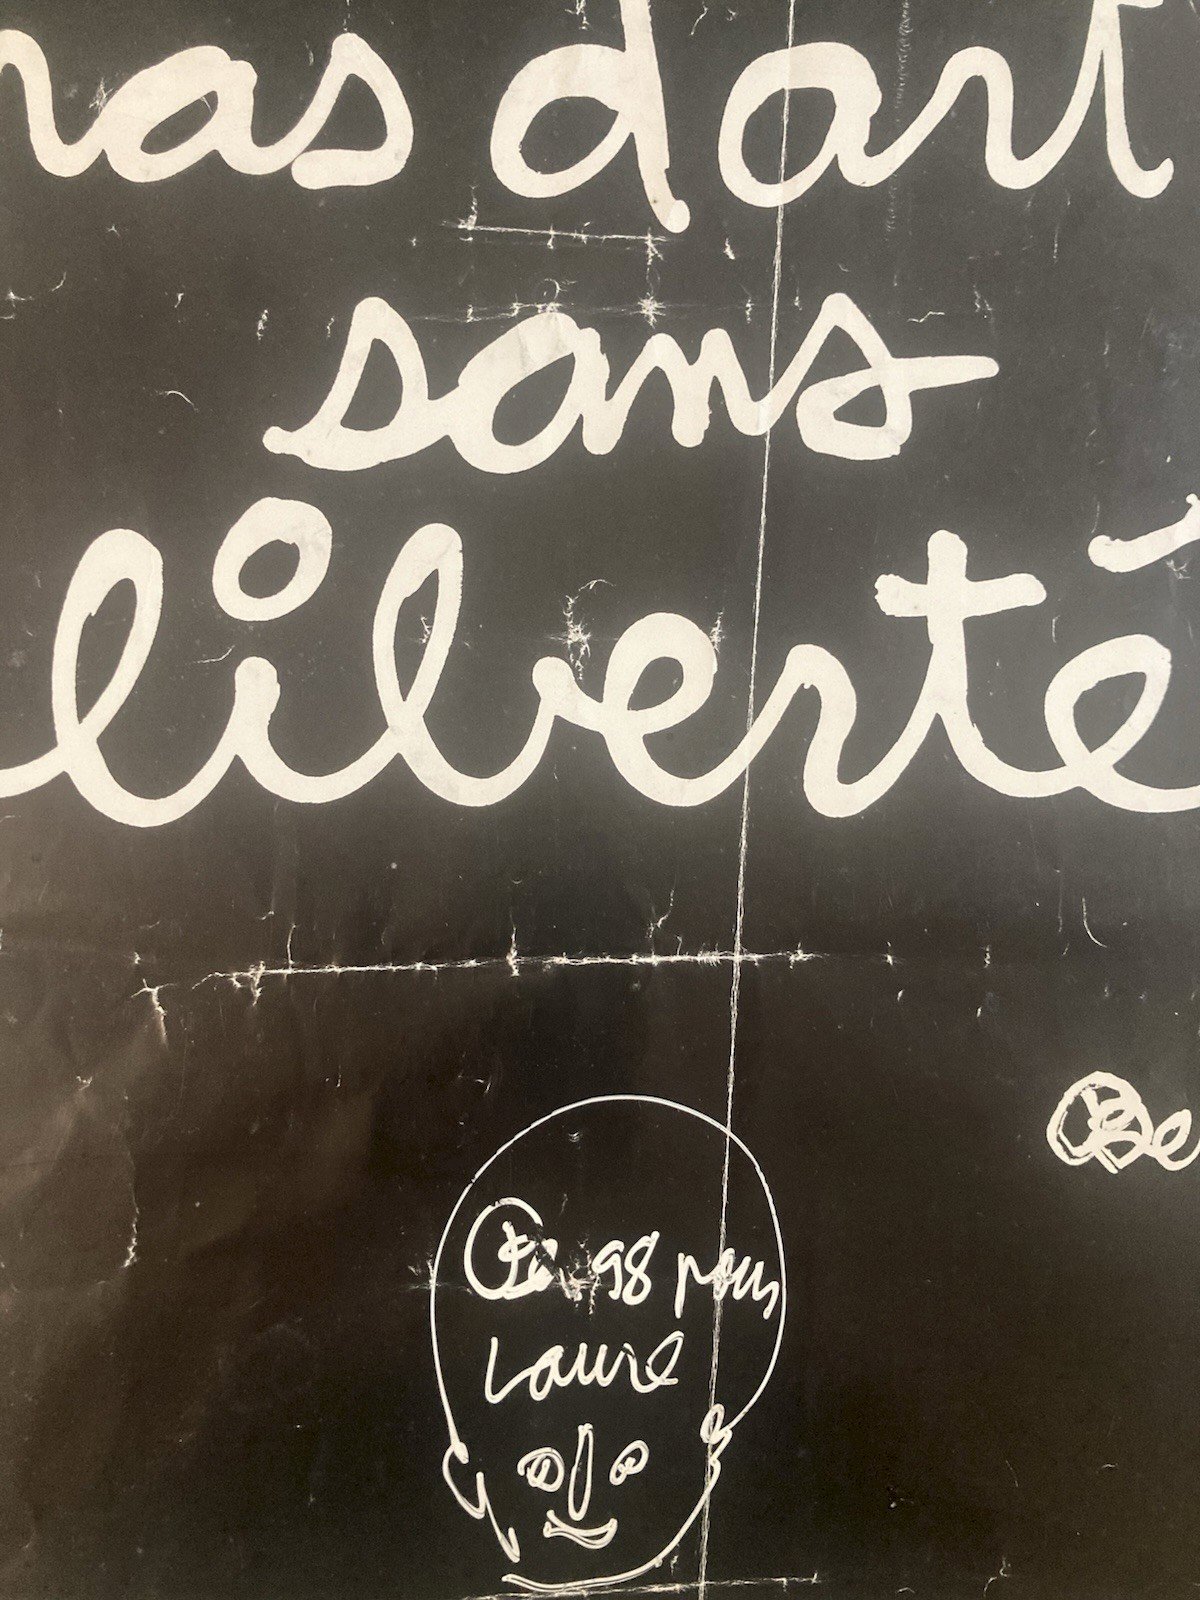 pas d'art
sans
liberté
Be
Ben 98 pour
Laure